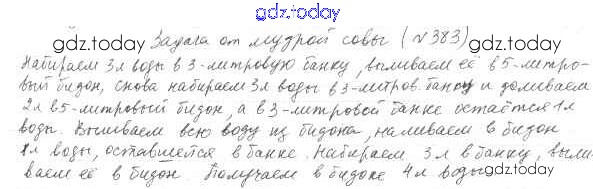 gdz.today
Задача от мудрой совы (№383)
gdz.today gdz.today
Набираем 3л воды в 3-литровую банку, выливаем её в 5-литро-
вый бидон, снова набираем 3л воды в 3-литров. банку и доливаем
2л в 5-литровый бидон, а в 3-литровой банке остаётся 1л
воды. Выливаем всю воду из бидона, наливаем в бидон
1л воды, оставшейся в банке. Набираем 3л в банку, выли-
ваем её в бидон. Получаем в бидоне 4л воды.
gdz.today gdz.today